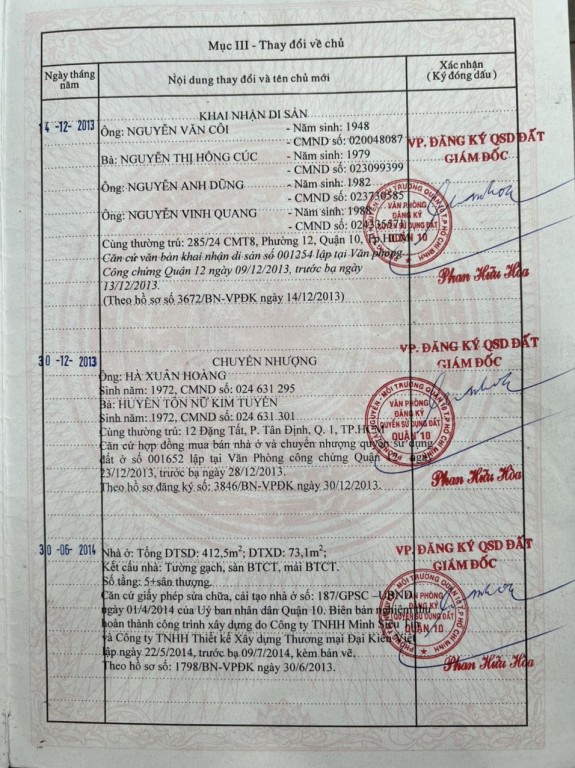 Mục III - Thay đổi về chủ
Ngày tháng năm
Nội dung thay đổi và tên chủ mới
Xác nhận
( Ký đóng dấu )
14 -12- 2013
KHAI NHẬN DI SẢN
Ông: NGUYỄN VĂN CÔI - Năm sinh: 1948
- CMND số: 020048087
Bà: NGUYỄN THỊ HỒNG CÚC - Năm sinh: 1979
- CMND số: 023099399
Ông: NGUYỄN ANH DŨNG - Năm sinh: 1982
- CMND số: 023730585
Ông: NGUYỄN VINH QUANG - Năm sinh:
- CMND số:
Cùng thường trú: 285/24 CMT8, Phường 12, Quận 10,
Căn cứ văn bản khai nhận di sản số 001254 lập tại Văn phòng
Công chứng Quận 12 ngày 09/12/2013, trước bạ ngày
13/12/2013.
(Theo hồ sơ số 3672/BN-VPĐK ngày 14/12/2013)
VP. ĐĂNG KÝ QSD ĐẤT
GIÁM ĐỐC
VĂN PHÒNG
ĐĂNG KÝ
QUYỀN SỬ DỤNG ĐẤT
QUẬN 10
Phan Hữu Hòa
30 -12- 2013
CHUYỂN NHƯỢNG
Ông: HÀ XUÂN HOÀNG
Sinh năm: 1972, CMND số: 024 631 295
Bà: HUYỀN TÔN NỮ KIM TUYẾN
Sinh năm: 1972, CMND số: 024 631 301
Cùng thường trú: 12 Đặng Tất, P. Tân Định, Q. 1, TP.HCM
Căn cứ hợp đồng mua bán nhà ở và chuyển nhượng quyền sử dụng
đất ở số 001652 lập tại Văn phòng công chứng Quận ngày
23/12/2013, trước bạ ngày 28/12/2013.
Theo hồ sơ đăng ký số: 3846/BN-VPĐK ngày 30/12/2013.
VP. ĐĂNG KÝ QSD ĐẤT
GIÁM ĐỐC
VĂN PHÒNG
ĐĂNG KÝ
QUYỀN SỬ DỤNG ĐẤT
QUẬN 10
Phan Hữu Hòa
30 -06- 2014
Nhà ở: Tổng DTSD: 412,5m²; DTXD: 73,1m²;
Kết cấu nhà: Tường gạch, sàn BTCT, mái BTCT.
Số tầng: 5+sân thượng.
Căn cứ giấy phép sửa chữa, cải tạo nhà ở số: 187/GPSC -UBND
ngày 01/4/2014 của Uỷ ban nhân dân Quận 10. Biên bản nghiệm thu
hoàn thành công trình xây dựng do Công ty TNHH Minh Siêu
và Công ty TNHH Thiết kế Xây dựng Thương mại Đại Kiến Việt
lập ngày 22/5/2014, trước bạ 09/7/2014, kèm bản vẽ.
Theo hồ sơ số: 1798/BN-VPĐK ngày 30/6/2013.
VP. ĐĂNG KÝ QSD ĐẤT
GIÁM ĐỐC
VĂN PHÒNG
ĐĂNG KÝ
QUYỀN SỬ DỤNG ĐẤT
QUẬN 10
Phan Hữu Hòa